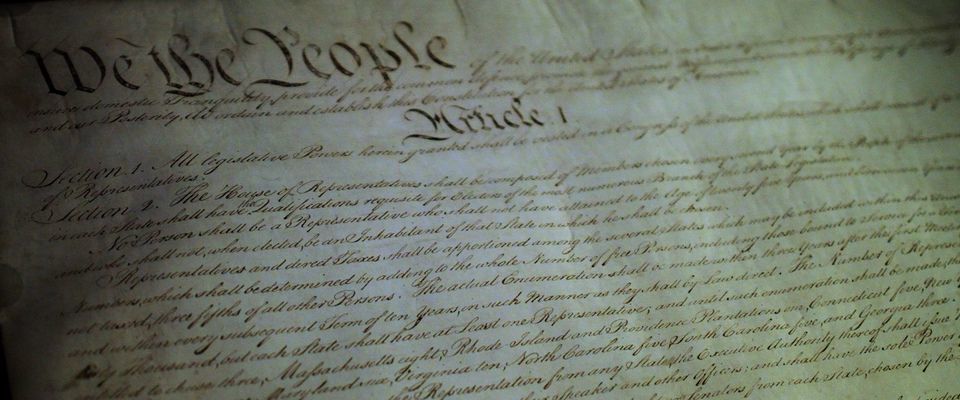 We the People of the United States
insure domestic Tranquility, provide for the common defence,
and our Posterity, do ordain and establish this Constitution for the United States of America.
Article. I.
Section. 1. All legislative Powers herein granted shall be vested in a Congress of the United States, which shall consist of
of Representatives.
Section. 2. The House of Representatives shall be composed of Members chosen every second Year by the People of
in each State shall have the Qualifications requisite for Electors of the most numerous Branch of the State Legislature.
No Person shall be a Representative who shall not have attained to the Age of twenty five Years, and been seven Years
and who shall not, when elected, be an Inhabitant of that State in which he shall be chosen.
Representatives and direct Taxes shall be apportioned among the several States which may be included within this
Numbers, which shall be determined by adding to the whole Number of free Persons, including those bound to Service for a
not taxed, three fifths of all other Persons. The actual Enumeration shall be made within three Years after the first
and within every subsequent Term of ten Years, in such Manner as they shall by Law direct. The Number of
thirty Thousand, but each State shall have at Least one Representative; and until such enumeration shall be made, the
entitled to chuse three, Massachusetts eight, Rhode Island and Providence Plantations one, Connecticut five, New
Maryland six, Virginia ten, North Carolina five, South Carolina five, and Georgia three.
the Representation from any State, the Executive Authority thereof shall
Speaker and other Officers; and shall have the sole Power
Senators from each State, chosen by the